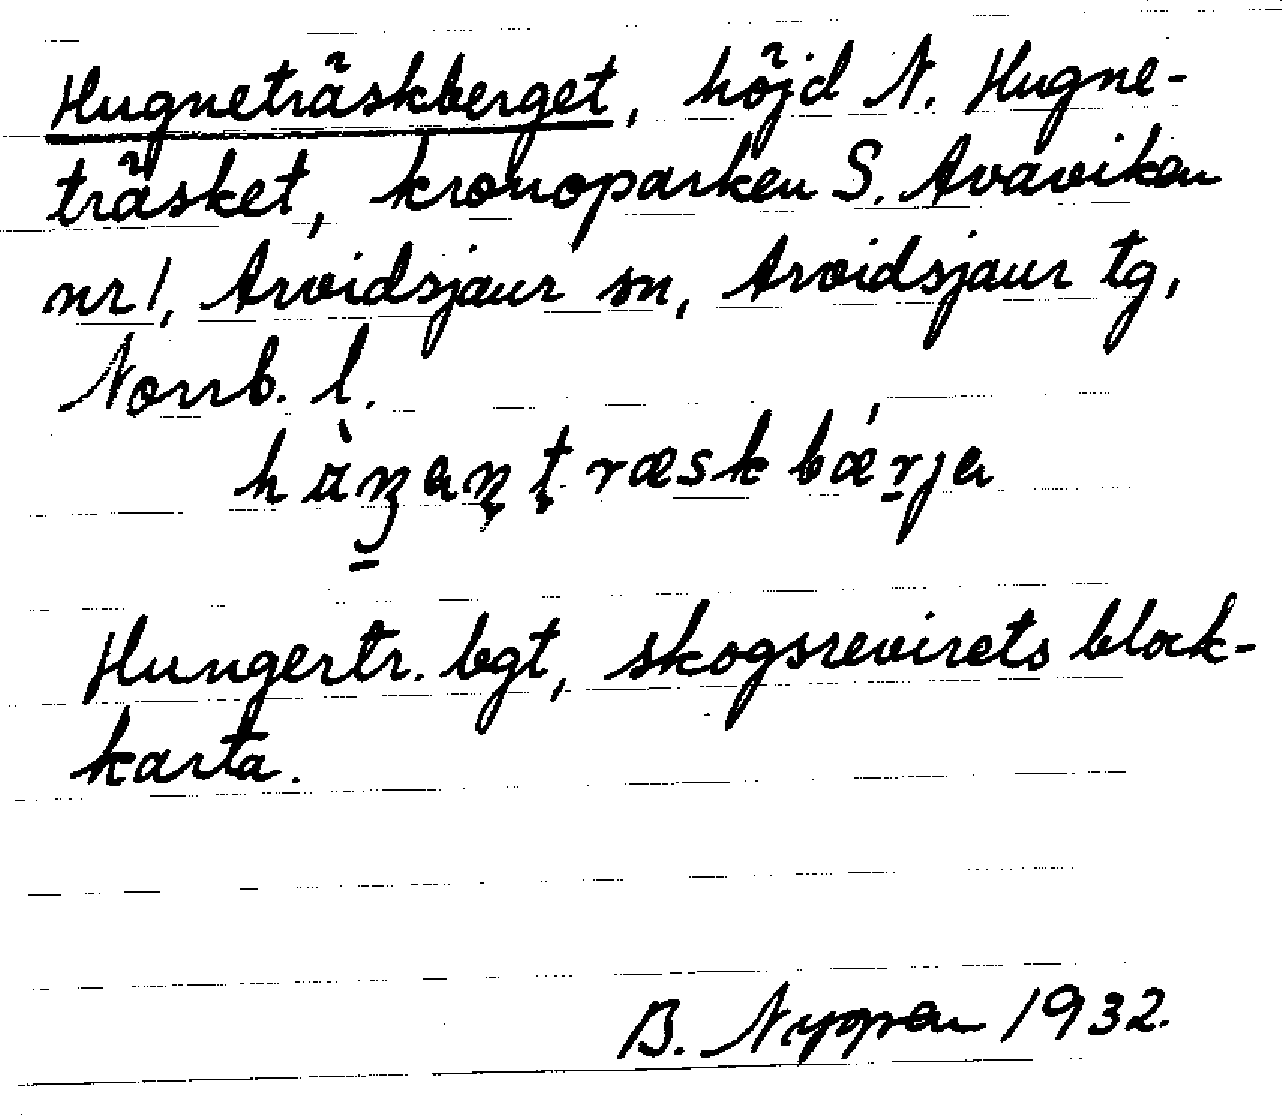 Hugneträskberget, höjd N. Hugne-
träsket, kronoparken S. Avaviken
nr 1, Arvidsjaur sn, Arvidsjaur tg,
Norrb. l.
Hungertr. bgt, skogsrevirets block-
karta.
B. Nygren 1932.